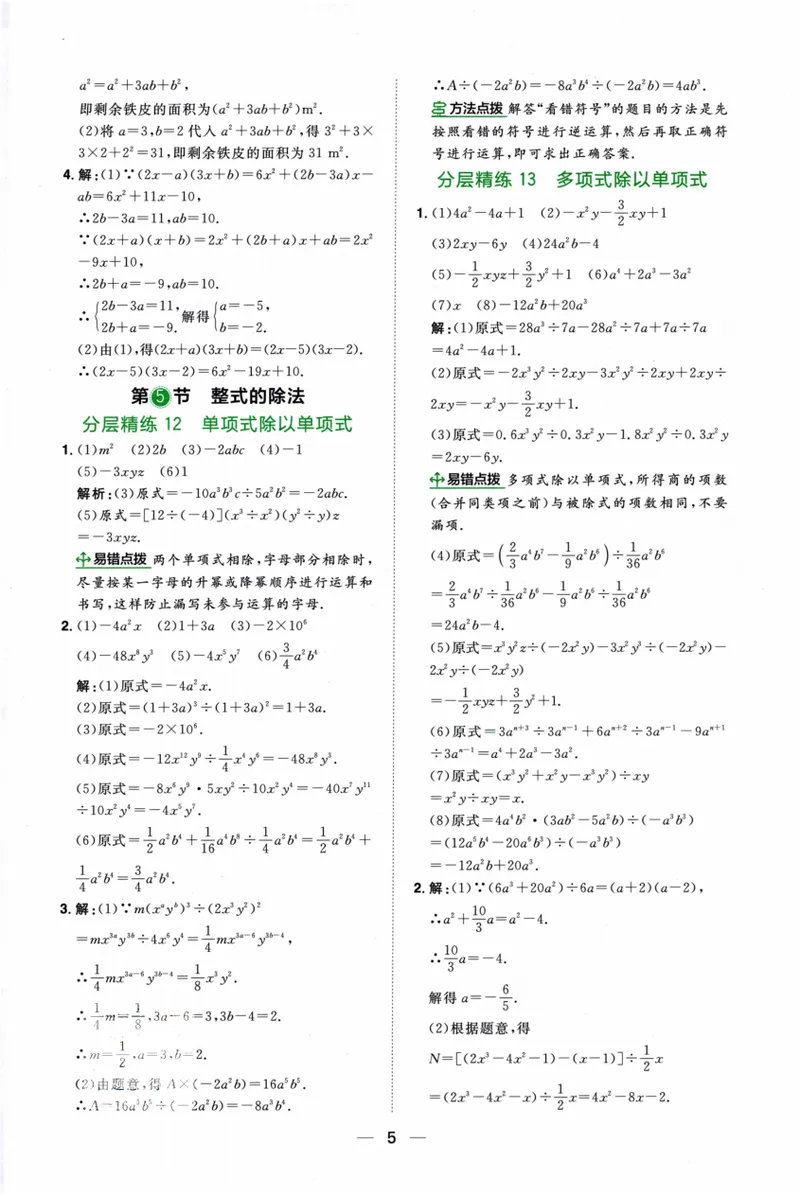 a²=a²+3ab+b²,
即剩余铁皮的面积为(a²+3ab+b²)m².
(2)将 a=3,b=2 代入 a²+3ab+b²,得 3²+3×
3×2+2²=31,即剩余铁皮的面积为 31 m².
4.解:(1)∵(2x-a)(3x+b)=6x²+(2b-3a)x-
ab=6x²+11x-10,
∴2b-3a=11,ab=10.
∵(2x+a)(x+b)=2x²+(2b+a)x+ab=2x²
-9x+10,
∴2b+a=-9,ab=10.
∴{2b-3a=11, 2b+a=-9. 解得{a=-5, b=-2.
(2)由(1),得(2x+a)(3x+b)=(2x-5)(3x-2).
∴(2x-5)(3x-2)=6x²-19x+10.
第5节 整式的除法
分层精练 12 单项式除以单项式
1.(1)m² (2)2b (3)-2abc (4)-1
(5)-3xyz (6)1
解析:(3)原式=-10a³b³c÷5a²b²=-2abc.
(5)原式=[12÷(-4)](x³÷x²)(y²÷y)z
=-3xyz.
易错点拨 两个单项式相除,字母部分相除时,
尽量按某一字母的升幂或降幂顺序进行运算和
书写,这样防止漏写未参与运算的字母.
2.(1)-4a²x (2)1+3a (3)-2×10⁶
(4)-48x⁸y³ (5)-4x⁵y⁷ (6)3/4a²b⁴
解:(1)原式=-4a²x.
(2)原式=(1+3a)³÷(1+3a)²=1+3a.
(3)原式=-2×10⁶.
(4)原式=-12x¹²y⁹÷1/4x⁴y⁶=-48x⁸y³.
(5)原式=-8x⁶y⁹·5xy²÷10x²y⁴=-40x⁷y¹¹
÷10x²y⁴=-4x⁵y⁷.
(6)原式=1/2a²b⁴+1/16a⁴b⁸÷1/4a²b⁴=1/2a²b⁴+
1/4a²b⁴=3/4a²b⁴.
3.解:(1)∵m(xᵃyᵇ)³÷(2x³y²)²
=mx³ᵃy³ᵇ÷4x⁶y⁴=1/4mx³ᵃ⁻⁶y³ᵇ⁻⁴,
∴1/4mx³ᵃ⁻⁶y³ᵇ⁻⁴=1/8x³y².
∴1/4m=1/8,3a-6=3,3b-4=2.
∴m=1/2,a=3,b=2.
(2)由题意,得 A×(-2a²b)=16a⁵b⁵.
∴A=16a⁵b⁵÷(-2a²b)=-8a³b⁴.
∴A÷(-2a²b)=-8a³b⁴÷(-2a²b)=4ab³.
方法点拨 解答“看错符号”的题目的方法是先
按照看错的符号进行逆运算,然后再取正确符
号进行运算,即可求出正确答案.
分层精练 13 多项式除以单项式
1.(1)4a²-4a+1 (2)-x²y-3/2xy+1
(3)2xy-6y (4)24a²b-4
(5)-1/2xyz+3/2y²+1 (6)a⁴+2a³-3a²
(7)x (8)-12a²b+20a³
解:(1)原式=28a³÷7a-28a²÷7a+7a÷7a
=4a²-4a+1.
(2)原式=-2x³y²÷2xy-3x²y²÷2xy+2xy÷
2xy=-x²y-3/2xy+1.
(3)原式=0.6x³y²÷0.3x²y-1.8x²y²÷0.3x²y
=2xy-6y.
易错点拨 多项式除以单项式,所得商的项数
(合并同类项之前)与被除式的项数相同,不要
漏项.
(4)原式=(2/3a⁴b⁷-1/9a²b⁶)÷1/36a²b⁶
=2/3a⁴b⁷÷1/36a²b⁶-1/9a²b⁶÷1/36a²b⁶
=24a²b-4.
(5)原式=x³y²z÷(-2x²y)-3x²y³÷(-2x²y)-
2x²y÷(-2x²y)
=-1/2xyz+3/2y²+1.
(6)原式=3aⁿ⁺³÷3aⁿ⁻¹+6aⁿ⁺²÷3aⁿ⁻¹-9aⁿ⁺¹
÷3aⁿ⁻¹=a⁴+2a³-3a².
(7)原式=(x³y²+x²y-x³y²)÷xy
=x²y÷xy=x.
(8)原式=4a⁴b²·(3ab²-5a²b)÷(-a³b³)
=(12a⁵b⁴-20a⁶b³)÷(-a³b³)
=-12a²b+20a³.
2.解:(1)∵(6a³+20a²)÷6a=(a+2)(a-2),
∴a²+10/3a=a²-4.
∴10/3a=-4.
解得 a=-6/5.
(2)根据题意,得
N=[(2x³-4x²-1)-(x-1)]÷1/2x
=(2x³-4x²-x)÷1/2x=4x²-8x-2.
— 5 —